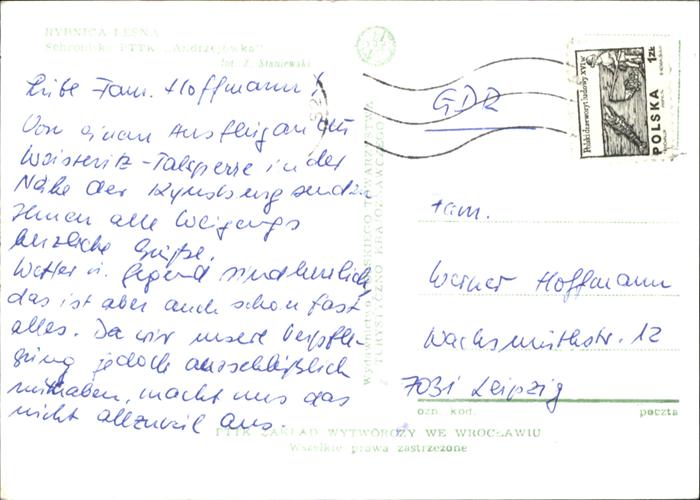 RYBNICA LEŚNA
Schronisko PTTK „Andrzejówka"
fot. Z. Staniewski
Liebe Fam. Hoffmann!
Von einem Ausflug an die
Weistritz-Talsperre in der
Nähe der Kynsburg senden
Ihnen alle Weigangs
herzliche Grüße.
Wetter u. Gegend sind herrlich,
das ist aber auch schon fast
alles. Da wir unsere Verpfle-
gung jedoch ausschließlich
mithaben, macht uns das
nicht allzuviel aus.
GDR
Polski drzeworyt ludowy XVI w
1zł
POLSKA
Fam.
Werner Hoffmann
Wachsmuthstr. 12
7031 Leipzig
ozn. kod.
poczta
TURYSTYCZNO KRAJOZNAWCZEGO
PTTK ZAKŁAD WYTWÓRCZY WE WROCŁAWIU
Wszelkie prawa zastrzeżone